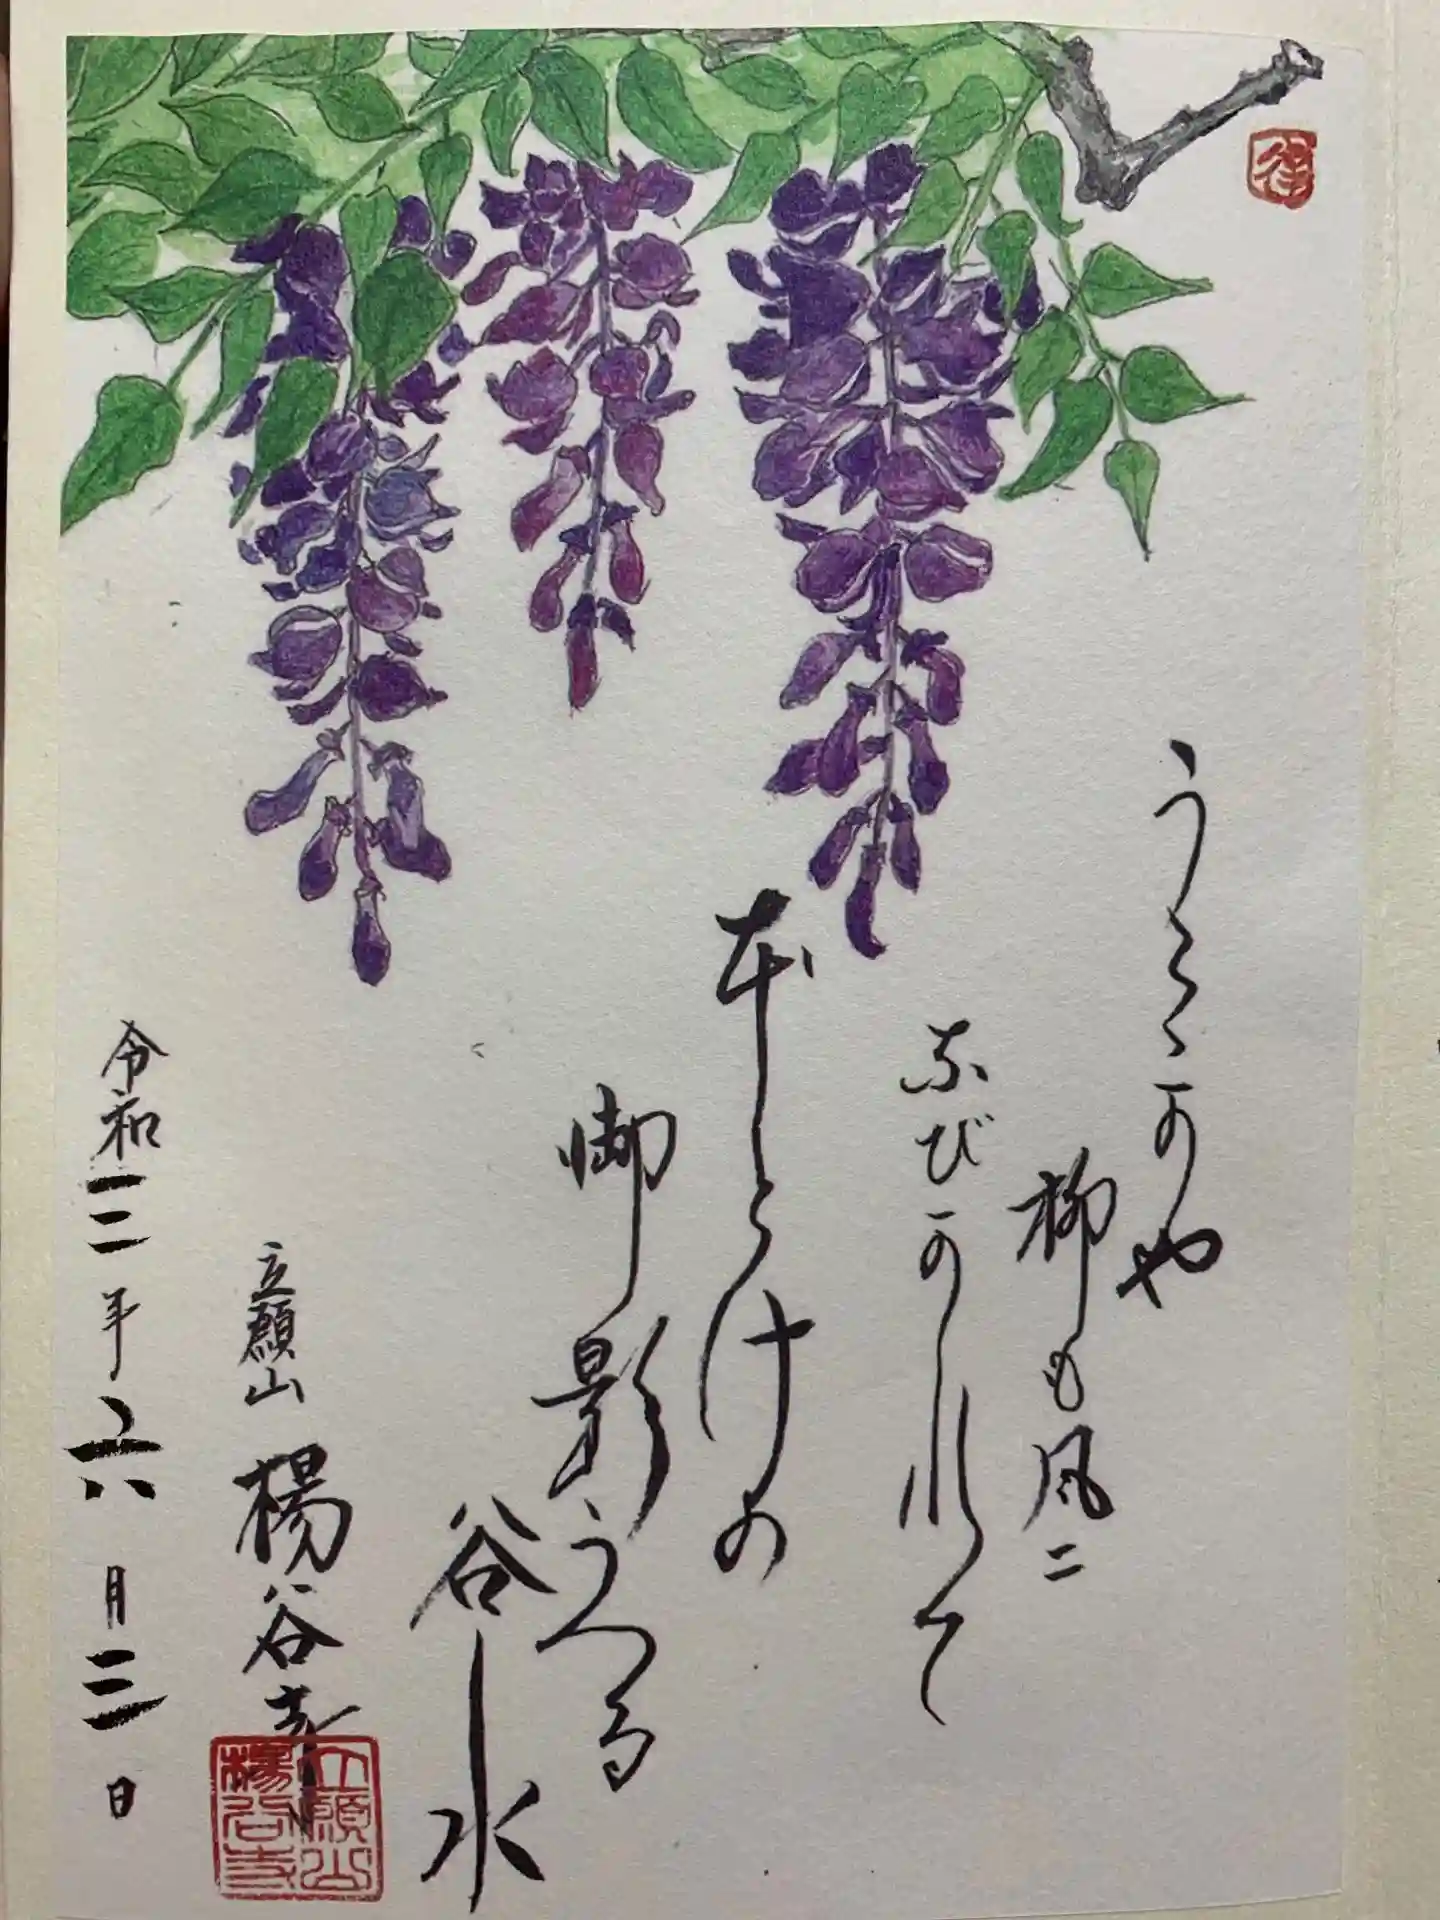 うらゝかや
柳も風ニ
なびかれて
ほとけの
御影うつる
谷水
立願山 楊谷寺
令和三年六月三日
立願山
楊谷寺